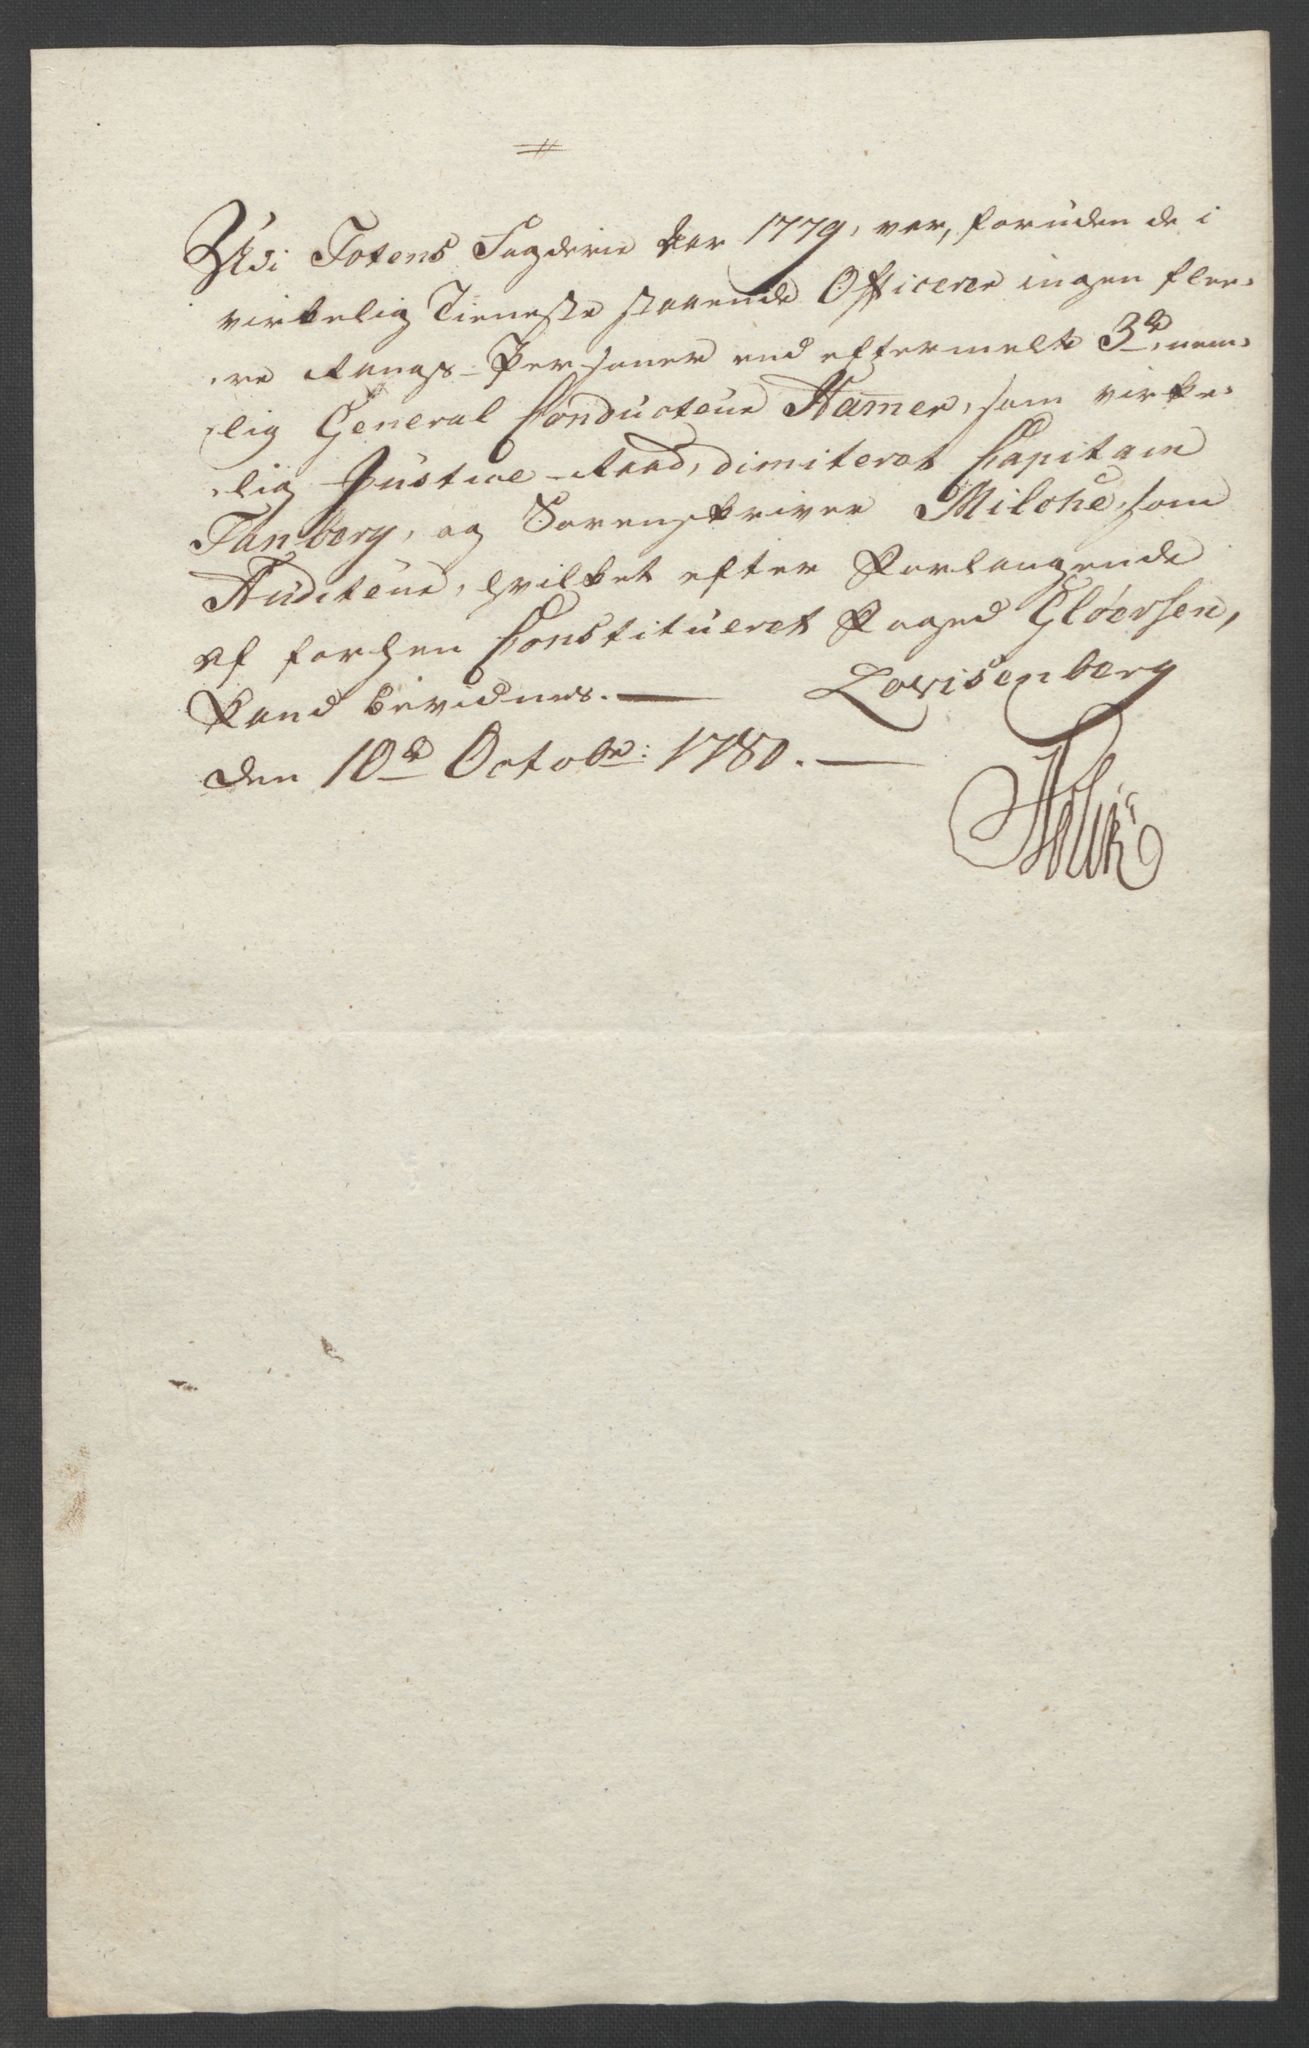 Udi Totens Fogderie Aar 1779, var, foruden de i
virkelig Tieneste staaende Officerer ingen flee-
-re Rangs-Personer end eftermelte 3de, nem-
-lig General Conducteur Hamer, som virke-
-lig Justice-Raad, dimiteret Capitain
Tanberg, og Sorenskriver Milche, som
Auditeur, hvilket efter Forlangende
af forhen Constitueret Foged Gløersen,
Kand bevidnes. — Lovisenberg
den 10de Octobr: 1780. —